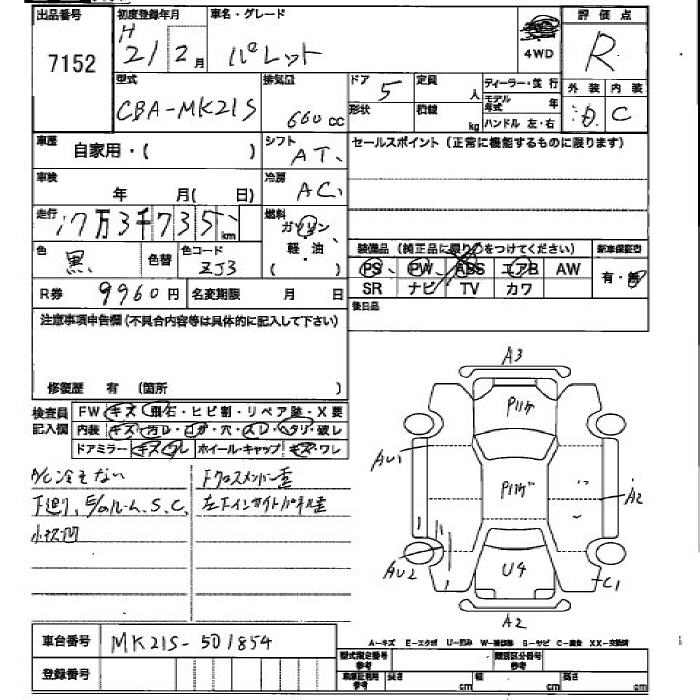 出品番号 初度登録年月 車名・グレード 評価点
7152 H 21 2月 パレット 4WD R
型式 排気量 ドア 定員 ディーラー・並行 外装 内装
CBA-MK21S 660cc 5 人 モデル年式 年 C
形状 積載 kg ハンドル 左・右
車歴 自家用・( ) シフト AT セールスポイント (正常に機能するものに限ります)
車検 年 月( 日) 冷房 AC
走行 17万3千735km 燃料 ガソリン・軽・油・( )
色 黒 色替 色コード ZJ3
装備品 (純正品に限り○をつけてください) 新車保証書
PS PW ABS エアB AW 有・無
SR ナビ TV カワ
R券 9960円 名変期限 月 日
後日品
注意事項申告欄(不具合内容等は具体的に記入して下さい)
修復歴 有 (箇所 )
検査員記入欄 FW キズ・飛石・ヒビ割・リペア跡・X要
内装 キズ・汚レ・コゲ・穴・スレ・ヘタリ・破レ
ドアミラー キズ・ワレ ホイール・キャップ キズ・ワレ
A/C冷えない Fクロスメンバー歪
下廻り、E/gルーム、S、C、 左下インサイドパネル歪
小キズ凹
A3
Pハゲ
AU1
Pハゲ
A2
AU2
U4
C1
A2
車台番号 MK21S-501854
A-キズ E-エクボ U-凹み W-補修跡 S-サビ C-腐食 XX-交換済
登録番号
型式指定番号 参考 類別区分番号 参考
車庫証明用 参考 長さ cm 幅 cm 高さ cm